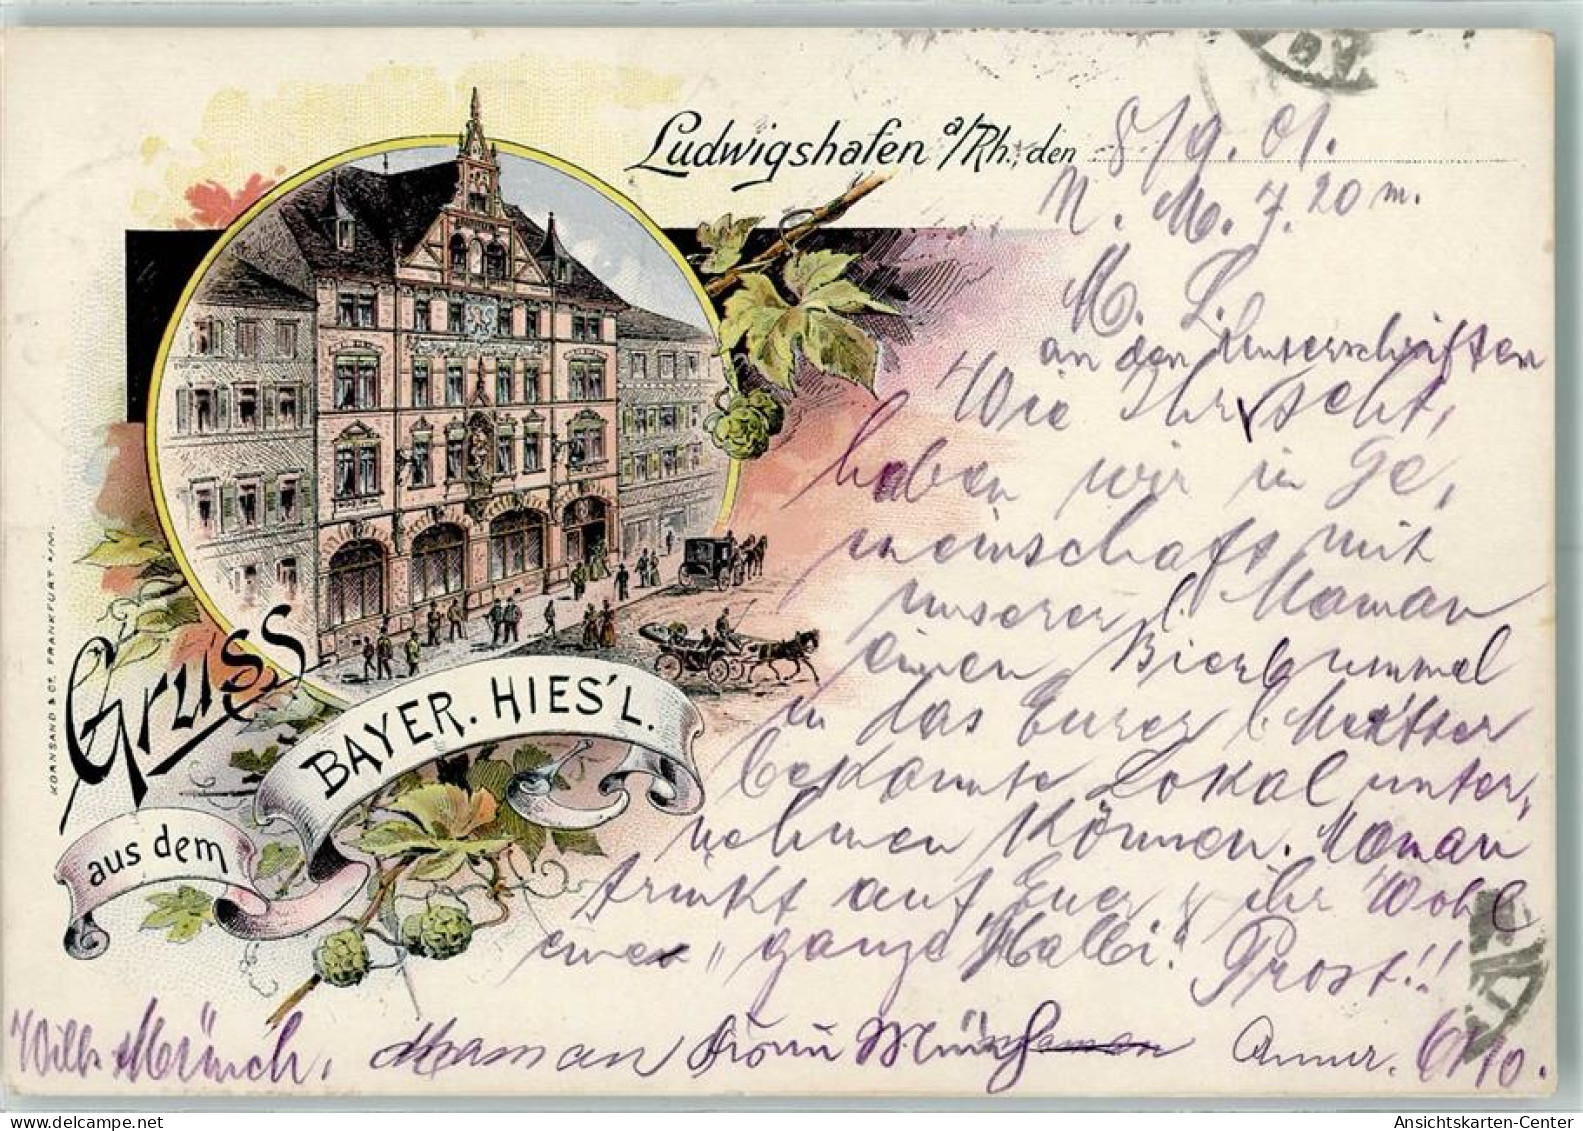 Ludwigshafen a/Rh., den 8/9. 01.
N. M. 7.20 m.
M. L.
an den Unterschriften
Wie Ihr seht,
haben wir in Ge,
meinschaft mit
unserer l. Maman
einen Bierbummel
in das Eurer l. Mutter
bekannte Lokal unter,
nehmen können. Maman
trinkt auf Euer & ihr Wohl
eine "ganze Halbi". Prost!!
Gruss
aus dem
BAYER. HIES'L.
KORNSAND & CO. FRANKFURT A/M.
Wilh. Münch, Maman Münch
Ansichtskarten-Center